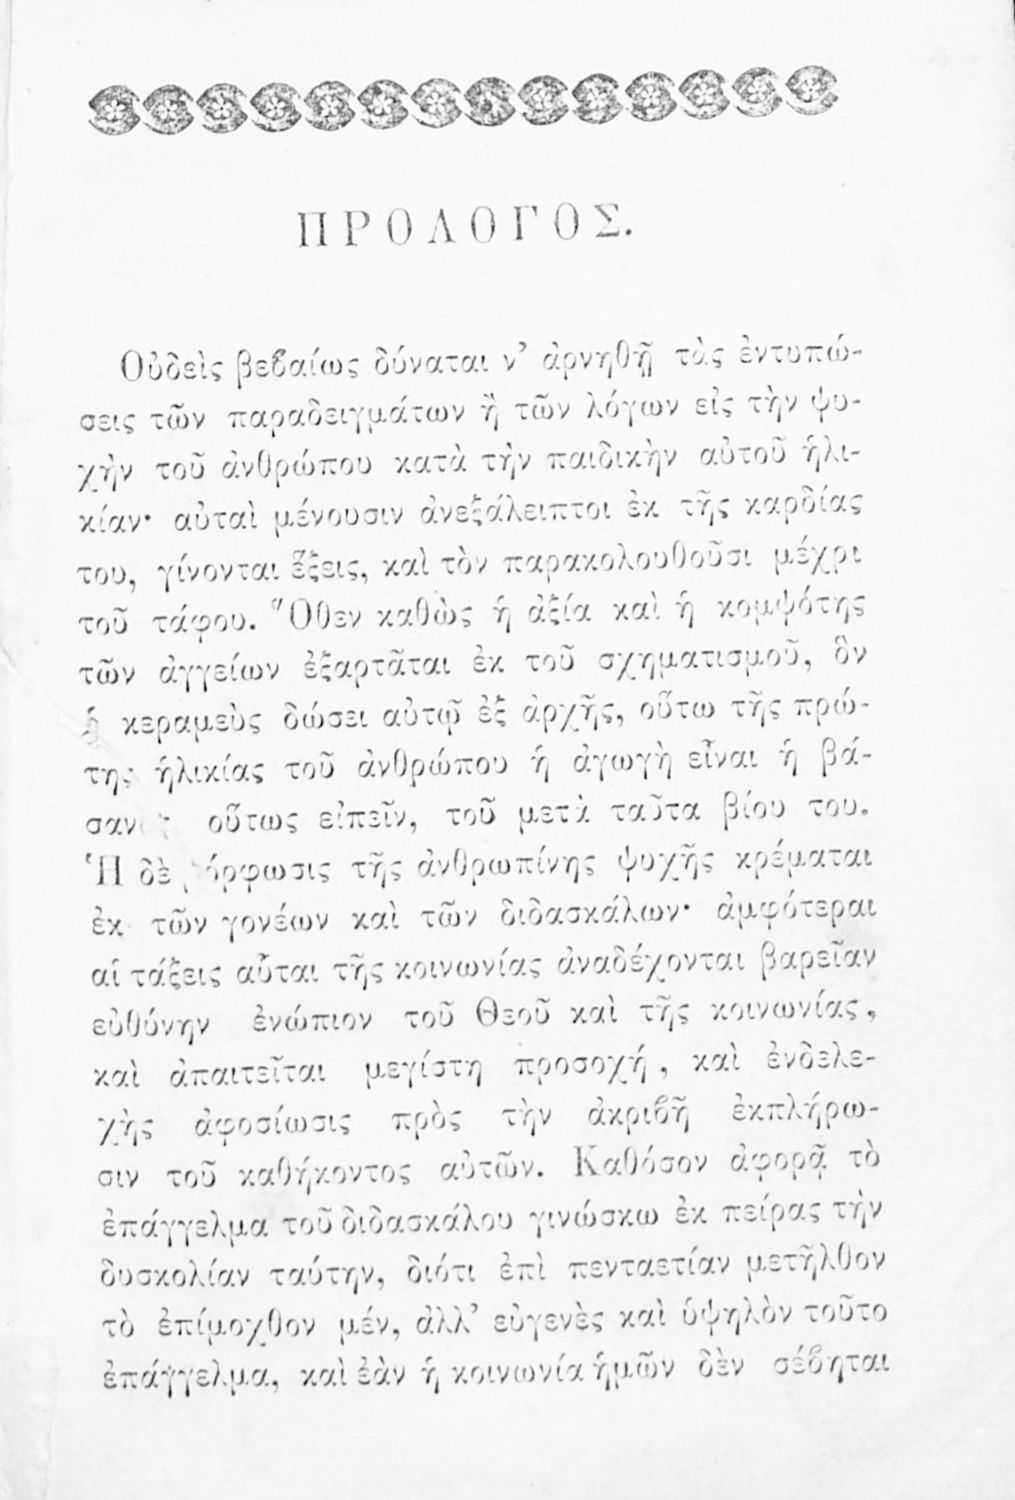 ΠΡΟΛΟΓΟΣ.
Οὐδεὶς βεβαίως δύναται ν’ ἀρνηθῇ τὰς ἐντυπώ-
σεις τῶν παραδειγμάτων ἢ τῶν λόγων εἰς τὴν ψυ-
χὴν τοῦ ἀνθρώπου κατὰ τὴν παιδικὴν αὐτοῦ ἡλι-
κίαν· αὐταὶ μένουσιν ἀνεξάλειπτοι ἐκ τῆς καρδίας
του, γίνονται ἕξεις, καὶ τὸν παρακολουθοῦσι μέχρι
τοῦ τάφου. Ὅθεν καθὼς ἡ ἀξία καὶ ἡ κομψότης
τῶν ἀγγείων ἐξαρτᾶται ἐκ τοῦ σχηματισμοῦ, ὃν
ὁ κεραμεὺς δώσει αὐτῷ ἐξ ἀρχῆς, οὕτω τῆς πρώ-
της ἡλικίας τοῦ ἀνθρώπου ἡ ἀγωγὴ εἶναι ἡ βά-
σανος οὕτως εἰπεῖν, τοῦ μετὰ ταῦτα βίου του.
Ἡ δὲ μόρφωσις τῆς ἀνθρωπίνης ψυχῆς κρέμαται
ἐκ τῶν γονέων καὶ τῶν διδασκάλων· ἀμφότεραι
αἱ τάξεις αὗται τῆς κοινωνίας ἀναδέχονται βαρεῖαν
εὐθύνην ἐνώπιον τοῦ Θεοῦ καὶ τῆς κοινωνίας,
καὶ ἀπαιτεῖται μεγίστη προσοχή, καὶ ἐνδελε-
χὴς ἀφοσίωσις πρὸς τὴν ἀκριβῆ ἐκπλήρω-
σιν τοῦ καθήκοντος αὐτῶν. Καθόσον ἀφορᾷ τὸ
ἐπάγγελμα τοῦ διδασκάλου γινώσκω ἐκ πείρας τὴν
δυσκολίαν ταύτην, διότι ἐπὶ πενταετίαν μετῆλθον
τὸ ἐπίμοχθον μέν, ἀλλ’ εὐγενὲς καὶ ὑψηλὸν τοῦτο
ἐπάγγελμα, καὶ ἐὰν ἡ κοινωνία ἡμῶν δὲν σέβηται